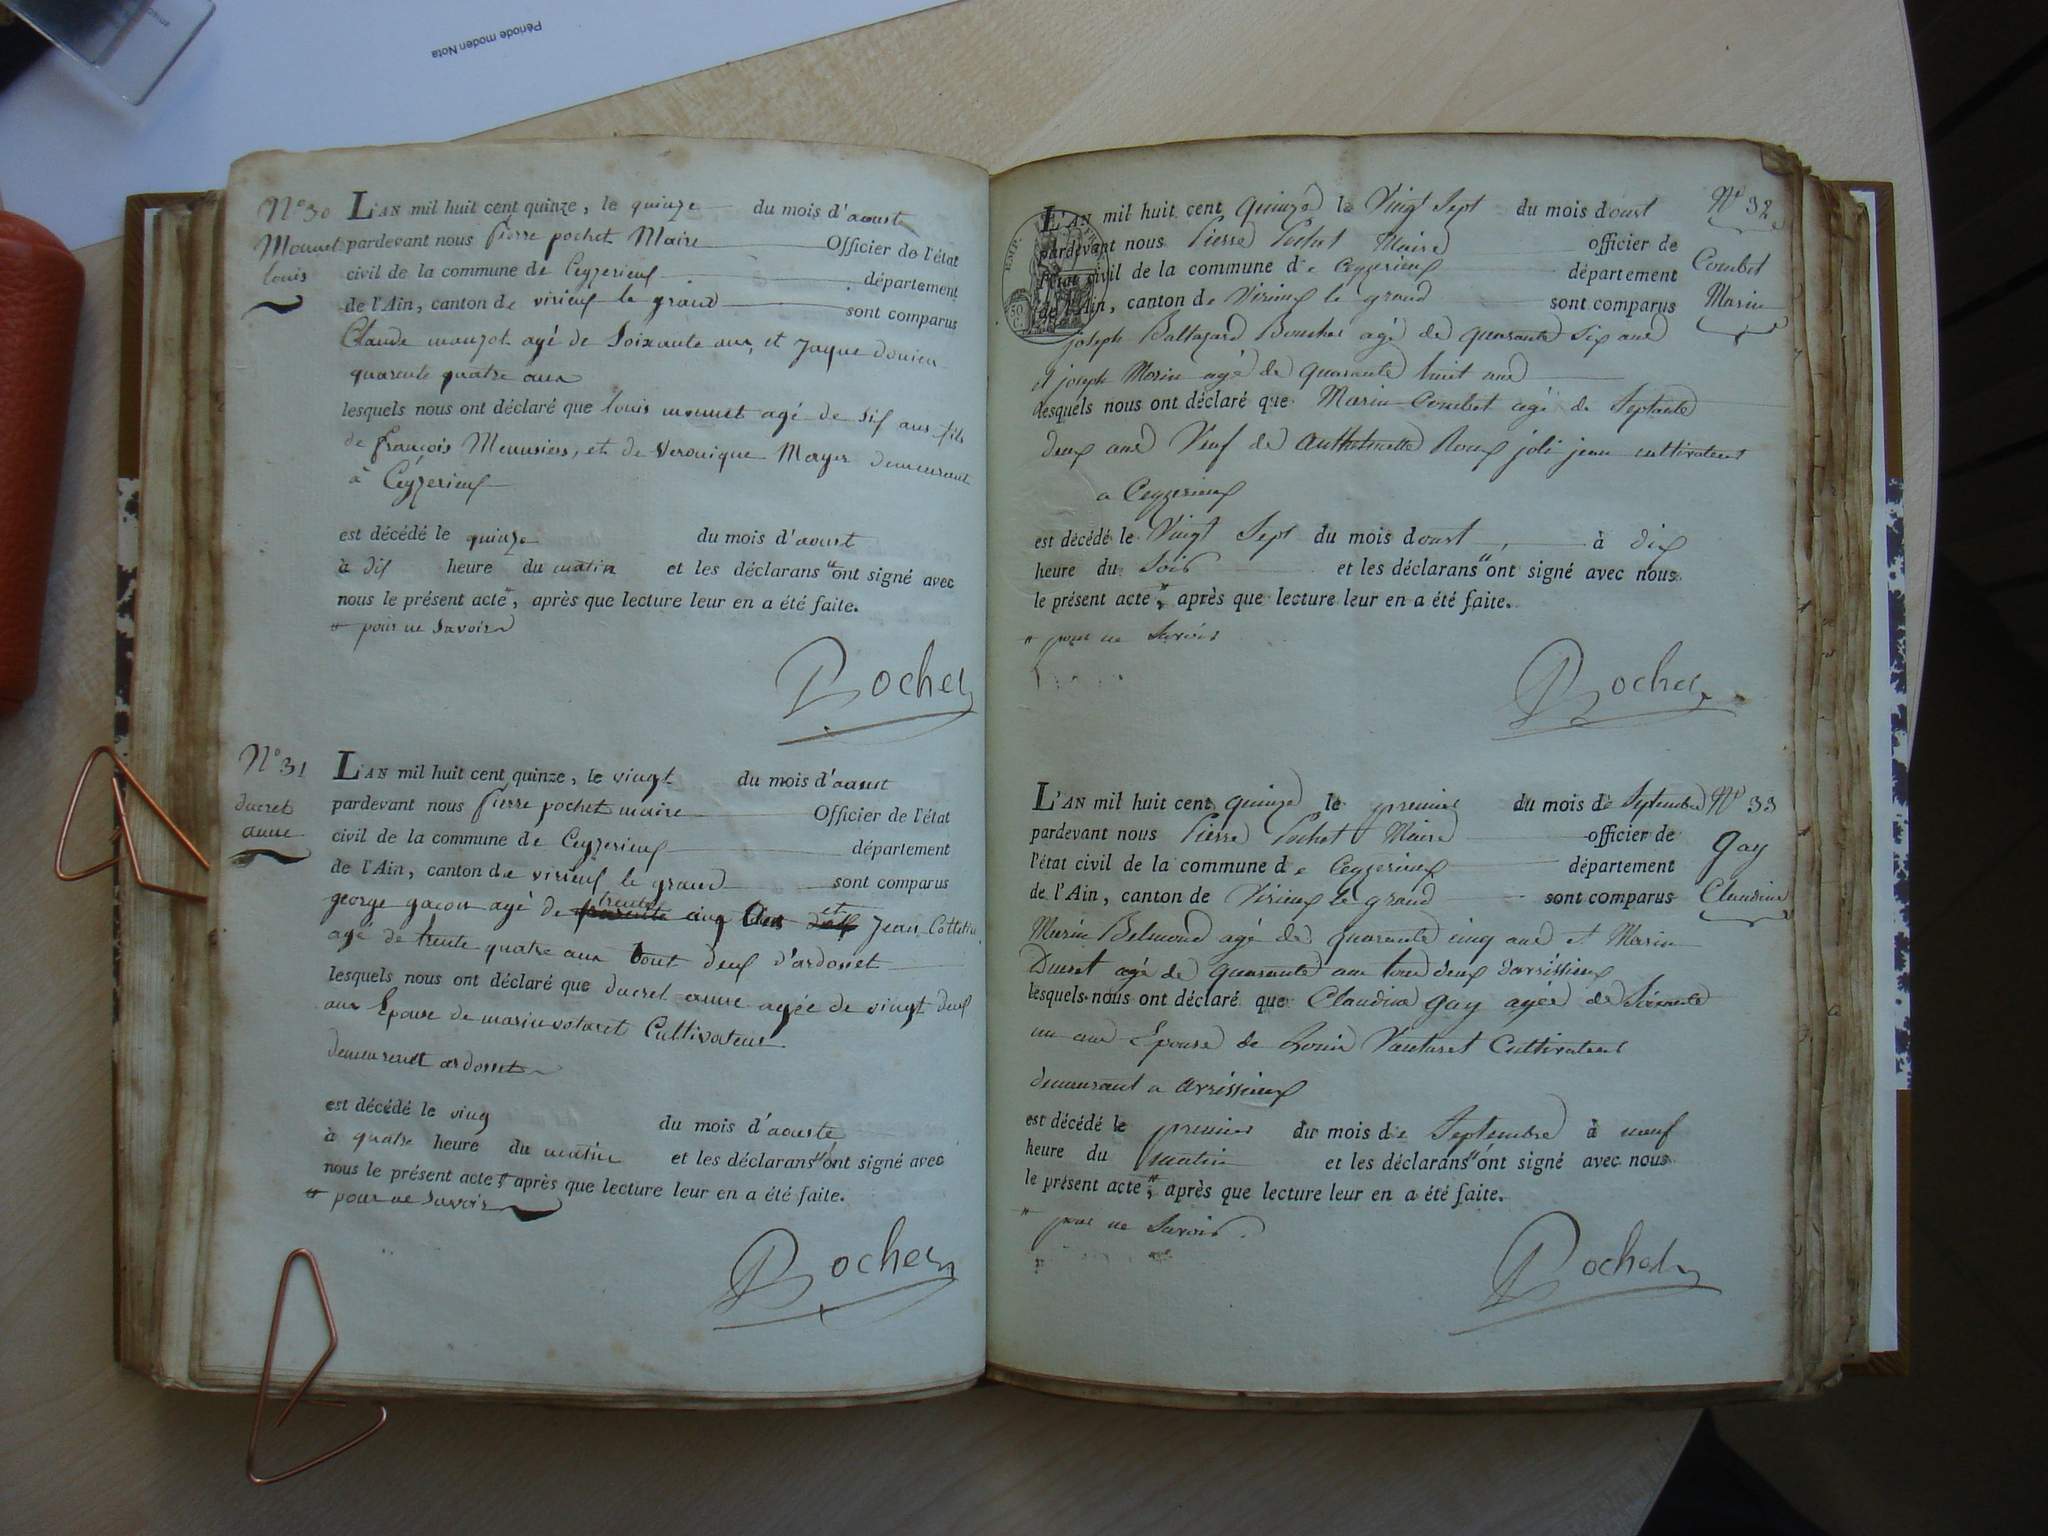 Période moden Nota
N.o 30
Monnet
louis
L'AN mil huit cent quinze, le quinze du mois d'aoust
pardevant nous pierre pochet Maire Officier de l'état
civil de la commune de Ceyzerieux département
de l'Ain, canton de virieux le grand sont comparus
Claude mauzot agé de Soixante ans, et Jaque
quarente quatre ans
lesquels nous ont déclaré que louis monnet agé de dix ans fils
de françois Menusiers, et de Veronique Mayer demeurant
à Ceyzerieux
est décédé le quinze du mois d'aoust
à dix heure du matin et les déclarans " ont signé avec
nous le présent acte ", après que lecture leur en a été faite.
" pour ne Savoir
Pochet
N.o 31
ducret
anne
L'AN mil huit cent quinze, le vingt du mois d'aoust
pardevant nous pierre pochet maire Officier de l'état
civil de la commune de Ceyzerieux département
de l'Ain, canton de virieux le grand sont comparus
george gacon agé de trente cinq ans et Jean
agé de trente quatre ans tout deux d'ardosset
lesquels nous ont déclaré que ducret anne agée de vingt deux
ans Epouse de marin votaret Cultivateur
demeurent ardosset
est décédé le ving du mois d'aouste
à quatre heure du matin et les déclarans " ont signé avec
nous le présent acte " après que lecture leur en a été faite.
" pour ne Savoir
Pochet
N.o 32
Combet
Marin
L'AN mil huit cent quinze le Vingt Sept du mois doust
pardevant nous Pierre Pochet Maire officier de
l'état civil de la commune de Ceyzerieux département
de l'Ain, canton de Virieux le grand sont comparus
joseph Baltazard Boucher agé de quarante Six ans
et joseph Morin agé de quarante huit ans
lesquels nous ont déclaré que Marin Combet agé de Septante
deux ans Veuf de Anthelmette Roux joli jean cultivateur
a Ceyzerieux
est décédé le Vingt Sept du mois doust à dix
heure du Soir et les déclarans " ont signé avec nous
le présent acte ", après que lecture leur en a été faite.
" pour ne Savoir
Pochet
N.o 33
gay
Claudine
L'AN mil huit cent quinze le premier du mois de Septembre
pardevant nous Pierre Pochet Maire officier de
l'état civil de la commune de Ceyzerieux département
de l'Ain, canton de Virieux le grand sont comparus
Marin Belmond agé de quarante cinq ans et Marin
Ducret agé de quarante ans tous deux davrissieux
lesquels nous ont déclaré que Claudine gay agée de Soixante
un ans Epouse de Louis Vautaret Cultivateur
demeurant a avrissieux
est décédé le premier du mois de Septembre à neuf
heure du matin et les déclarans " ont signé avec nous
le présent acte ", après que lecture leur en a été faite.
" pour ne Savoir.
Pochet